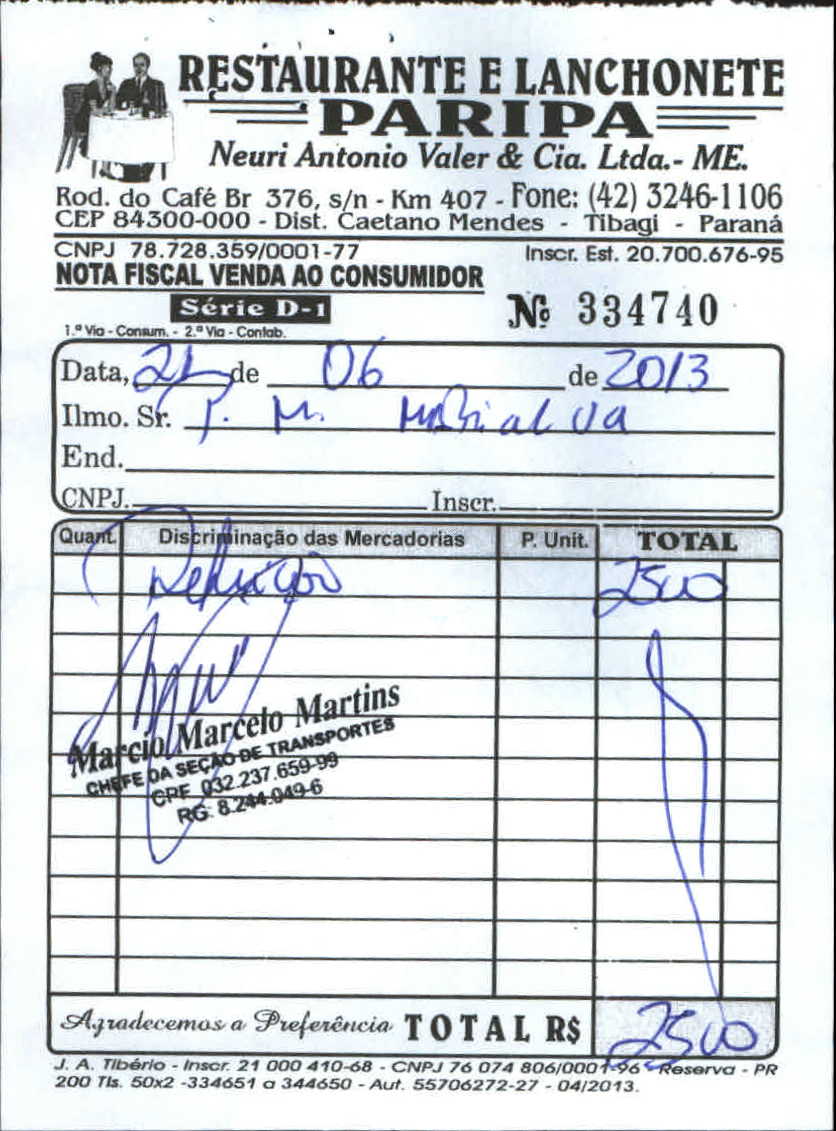 RESTAURANTE E LANCHONETE
PARIPA
Neuri Antonio Valer & Cia. Ltda.- ME.
Rod. do Café Br 376, s/n - Km 407 - Fone: (42) 3246-1106
CEP 84300-000 - Dist. Caetano Mendes - Tibagi - Paraná
CNPJ 78.728.359/0001-77 Inscr. Est. 20.700.676-95
NOTA FISCAL VENDA AO CONSUMIDOR
Série D-1 Nº 334740
1.ª Via - Consum. - 2.ª Via - Contab.
Data, 21 de 06 de 2013
Ilmo. Sr. P. M. Marialva
End.
CNPJ. Inscr.
Quant. Discriminação das Mercadorias P. Unit. TOTAL
Refeição 2500
Marcio Marcelo Martins
CHEFE DA SEÇÃO DE TRANSPORTES
CPF 032.237.659-99
RG: 8.244.049-6
Agradecemos a Preferência TOTAL R$ 2500
J. A. Tibério - Inscr. 21 000 410-68 - CNPJ 76 074 806/0001-96 - Reserva - PR
200 Tls. 50x2 -334651 a 344650 - Aut. 55706272-27 - 04/2013.